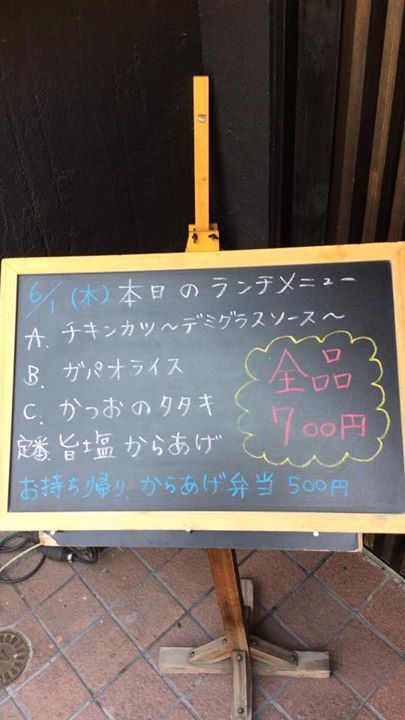 6/1 (木) 本日のランチメニュー
A. チキンカツ〜デミグラスソース〜
B. ガパオライス
C. かつおのタタキ
定番 旨塩からあげ
全品
700円
お持ち帰り からあげ弁当 500円